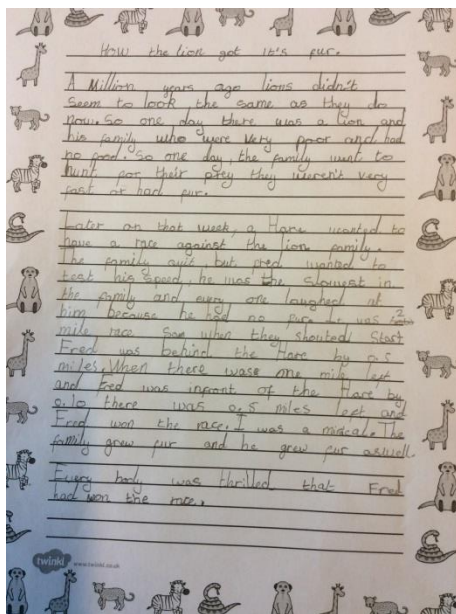 How the lion got it's fur.
A Million years ago lions didn't
seem to look the same as they do
now. So one day there was a lion and
his family who were very poor and had
no food. So one day, the family went to
hunt for their prey they weren't very
fast or had fur.
Later on that week, a Hare wanted to
have a race against the lion family.
The family quit, but Fred wanted to
test his speed, he was the slowest in
the family and every one laughed at
him because he had no it was 2
mile race. when they shouted Start
Fred was behind the Hare by 0.5
miles. When there wase one mile left
and Fred was infront of the Hare by
0.10 there was 0.5 miles left and
Fred won the race. I was a miricale. The
family grew fur and he grew fur aswell.
Every body was thrilled that Fred
had won the race.
twinkl www.twinkl.co.uk